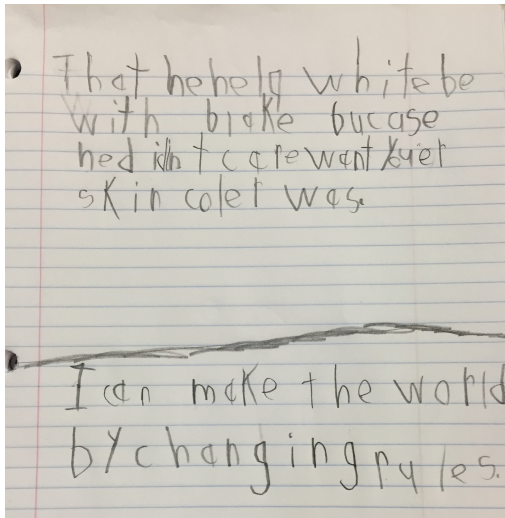 That he help white be
with blake bucase
he didn't care want yuer
skin coler was.
I can make the world
by changing rules.